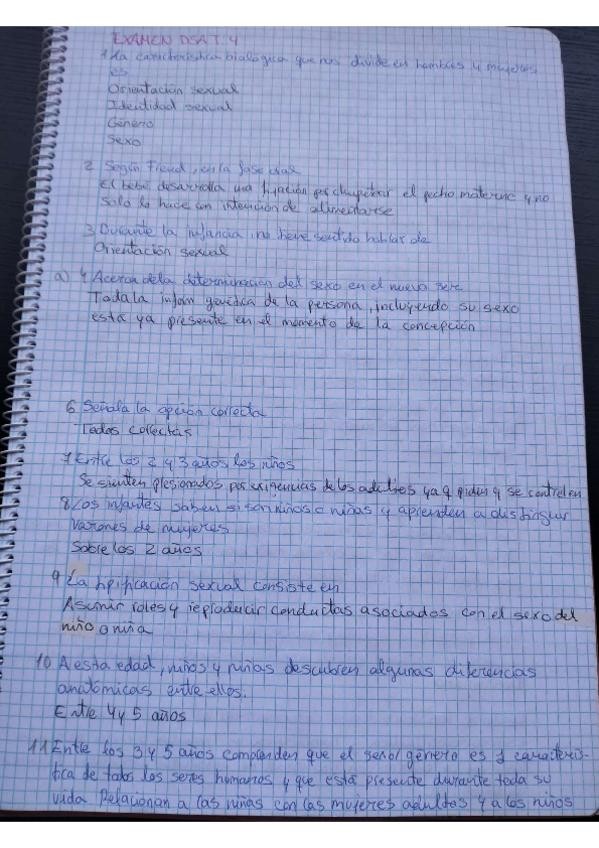 EXAMEN DSAT. 4
1 La característica biológica que nos divide en hombres y mujeres
es
Orientación sexual
Identidad sexual
Género
Sexo
2 Según Freud, en la fase oral
El bebé desarrolla una fijación por chupetear el pecho materno y no
solo lo hace con intención de alimentarse
3 Durante la infancia no tiene sentido hablar de
Orientación sexual
a) 4 Acerca de la determinación del sexo en el nuevo ser
Toda la inform genética de la persona, incluyendo su sexo
está ya presente en el momento de la concepción
6 Señala la opción correcta
Todas correctas
7 Entre los 2 y 3 años los niños
Se sienten presionados por exigencias de los adultos ya q piden q se controlen
8 Los infantes saben si son niños o niñas y aprenden a distinguir
varones de mujeres
Sobre los 2 años
9 La tipificación sexual consiste en
Asumir roles y reproducir conductas asociados con el sexo del
niño o niña
10 A esta edad, niños y niñas descubren algunas diferencias
anatómicas entre ellos.
Entre 4 y 5 años
11 Entre los 3 y 5 años comprenden que el sexo/género es 1 caracterís-
tica de todos los seres humanos y que está presente durante toda su
vida Relacionan a las niñas con las mujeres adultas y a los niños